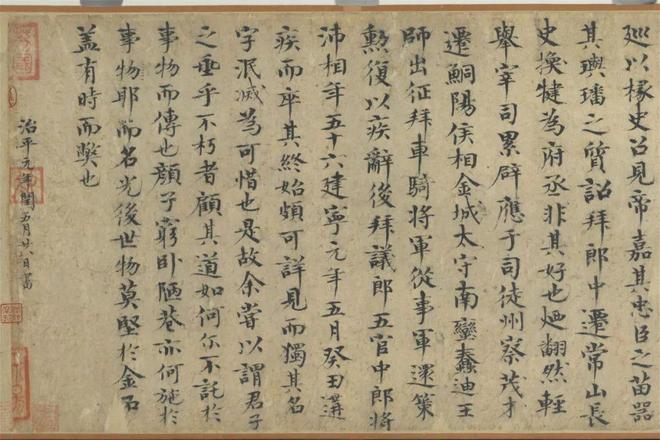 巡以掾史召見帝嘉其忠臣之苗器
其璵璠之質詔拜郎中遷常山長
史換犍為府丞非其好也迺翻然輕
舉宰司累辟應于司徒州察茂才
遷鮦陽侯相金城太守南蠻蠢迪王
師出征拜車騎將軍從事軍還策
勳復以疾辭後拜議郎五官中郎將
沛相年五十六建寧元年五月癸丑遘
疾而卒其終始頗可詳見而獨其名
字泯滅為可惜也是故余嘗以謂君子
之垂乎不朽者顧其道如何尔不託於
事物而傳也顏子窮卧陋巷亦何施於
事物耶而名光後世物莫堅於金石
蓋有時而弊也
治平元年閏五月廿八日書